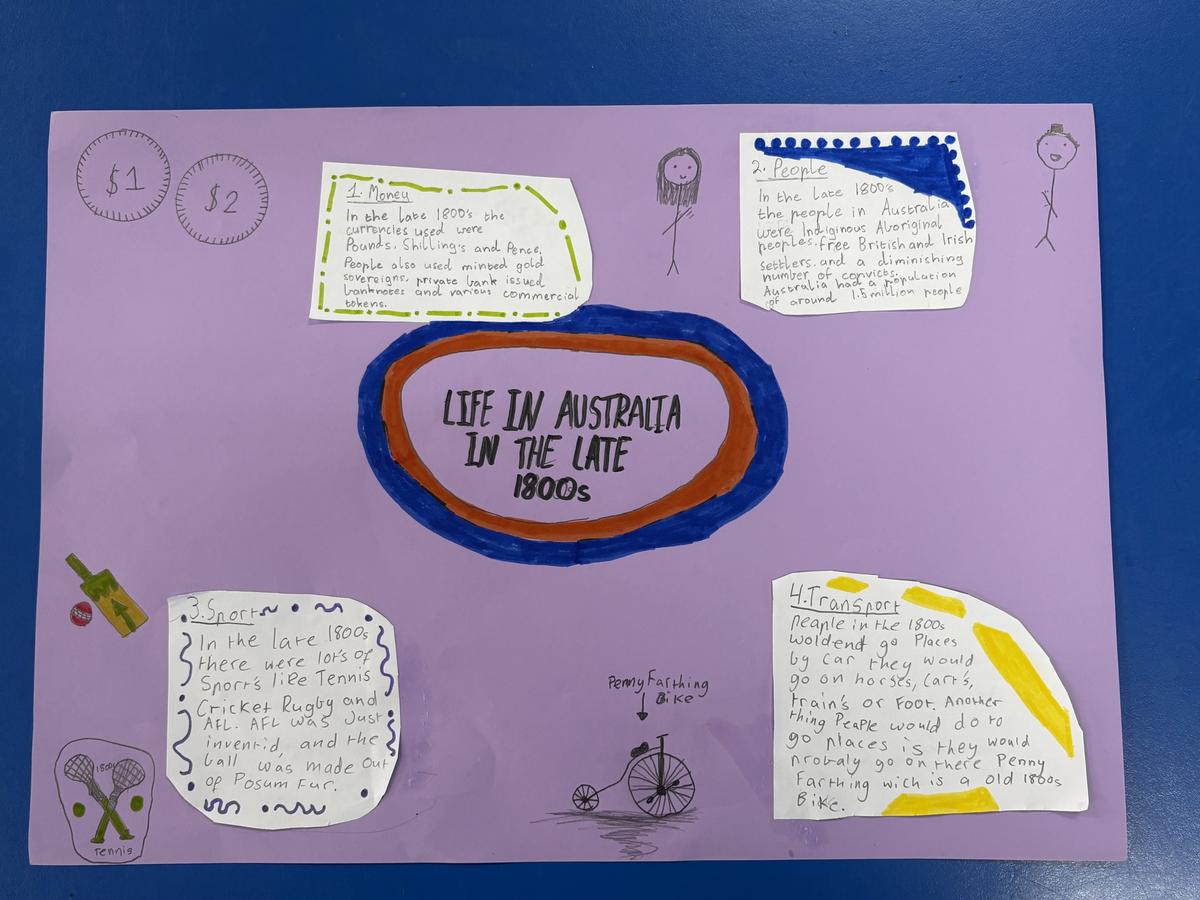 $1
$2
1. Money
In the late 1800's the
currencies used were
Pounds, Shilling's and Pence,
People also used minted gold
sovereigns, private bank issued
banknotes and various commercial
tokens.
2. People
In the late 1800's
the people in Australia
were Indiginous Aboriginal
peoples, free British and Irish
settlers, and a diminishing
number of convicts.
Australia had a population
of around 1.5 million people
LIFE IN AUSTRALIA
IN THE LATE
1800s
3. Sport
In the late 1800s
there were lot's of
Sport's like Tennis
Cricket Rugby and
AFL. AFL was Just
inventid and the
ball was made out
of Posum Fur.
1800s
Tennis
Penny Farthing
Bike
4. Transport
People in the 1800s
woldend go Places
by Car they would
go on horses, Cart's,
train's or Foot. Another
thing People would do to
go places is they would
probaly go on there Penny
Farthing wich is a old 1800s
Bike.